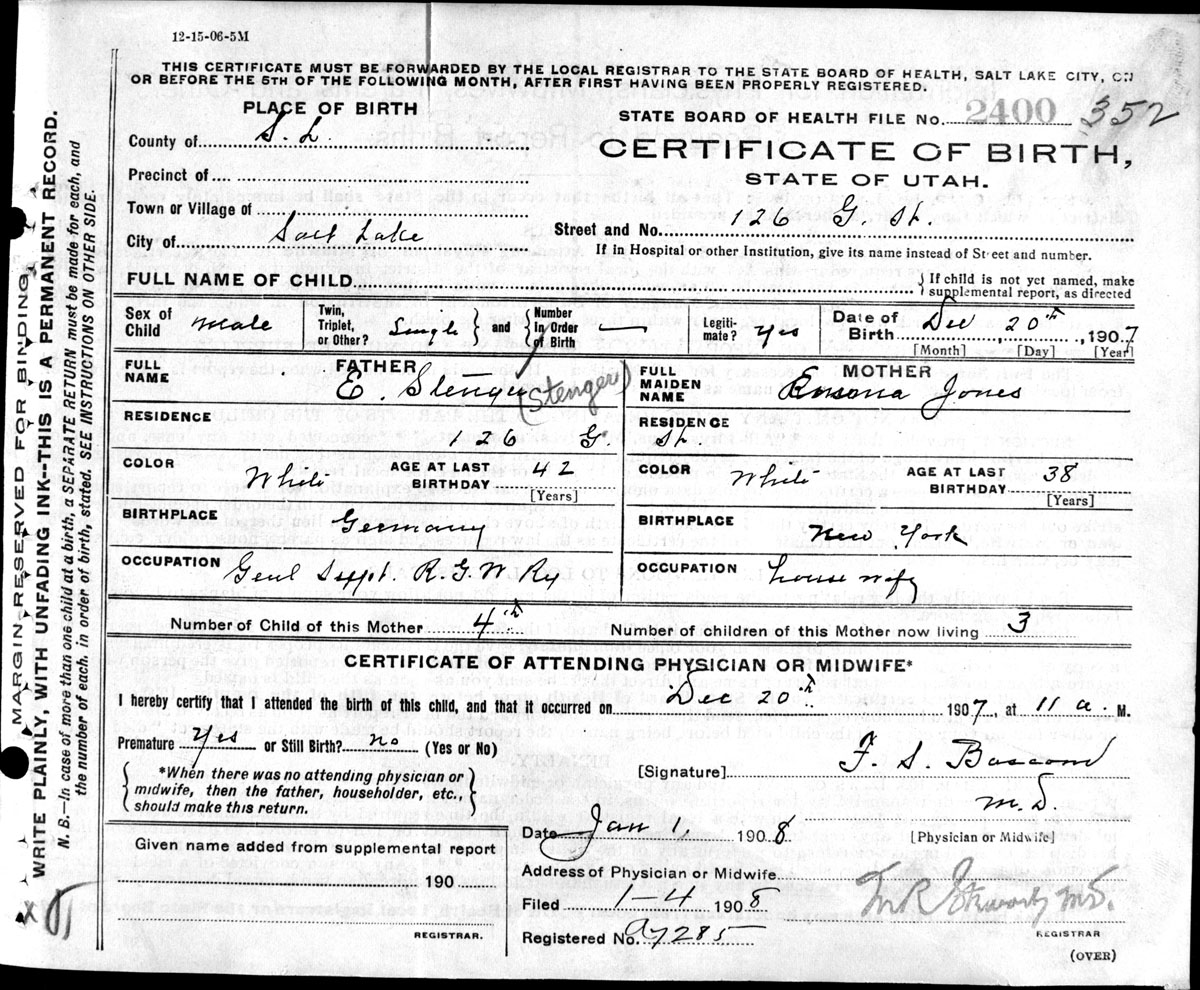 12-15-06-5M
THIS CERTIFICATE MUST BE FORWARDED BY THE LOCAL REGISTRAR TO THE STATE BOARD OF HEALTH, SALT LAKE CITY, ON
OR BEFORE THE 5TH OF THE FOLLOWING MONTH, AFTER FIRST HAVING BEEN PROPERLY REGISTERED.
PLACE OF BIRTH
STATE BOARD OF HEALTH FILE No. 2400 352
County of S. L.
CERTIFICATE OF BIRTH,
Precinct of
STATE OF UTAH.
Town or Village of
Street and No. 126 G. St.
City of Salt Lake
If in Hospital or other Institution, give its name instead of Street and number.
FULL NAME OF CHILD
If child is not yet named, make
supplemental report, as directed
Sex of Child Male
Twin, Triplet, or Other? Single and Number In Order of Birth —
Legitimate? yes
Date of Birth Dec 20th, 1907
[Month] [Day] [Year]
FATHER
FULL NAME E. Stenger (Stenger)
MOTHER
FULL MAIDEN NAME Jones
RESIDENCE 126 G.
RESIDENCE St
COLOR White AGE AT LAST BIRTHDAY 42
[Years]
COLOR White AGE AT LAST BIRTHDAY 38
[Years]
BIRTHPLACE Germany
BIRTHPLACE New York
OCCUPATION Genl Supt. R. G. W. Ry
OCCUPATION house wify
Number of Child of this Mother 4th
Number of children of this Mother now living 3
CERTIFICATE OF ATTENDING PHYSICIAN OR MIDWIFE*
I hereby certify that I attended the birth of this child, and that it occurred on Dec 20th 1907, at 11 a. M.
Premature yes or Still Birth? no (Yes or No)
*When there was no attending physician or
midwife, then the father, householder, etc.,
should make this return.
[Signature] F. S. Bascom
M.D.
Date Jan 1, 1908
[Physician or Midwife]
Given name added from supplemental report
190
REGISTRAR.
Address of Physician or Midwife
Filed 1-4 1908
Registered No. 285
M.D.
REGISTRAR
(OVER)
MARGIN RESERVED FOR BINDING
WRITE PLAINLY, WITH UNFADING INK--THIS IS A PERMANENT RECORD.
N. B.—In case of more than one child at a birth, a SEPARATE RETURN must be made for each, and
the number of each, in order of birth, stated. SEE INSTRUCTIONS ON OTHER SIDE.